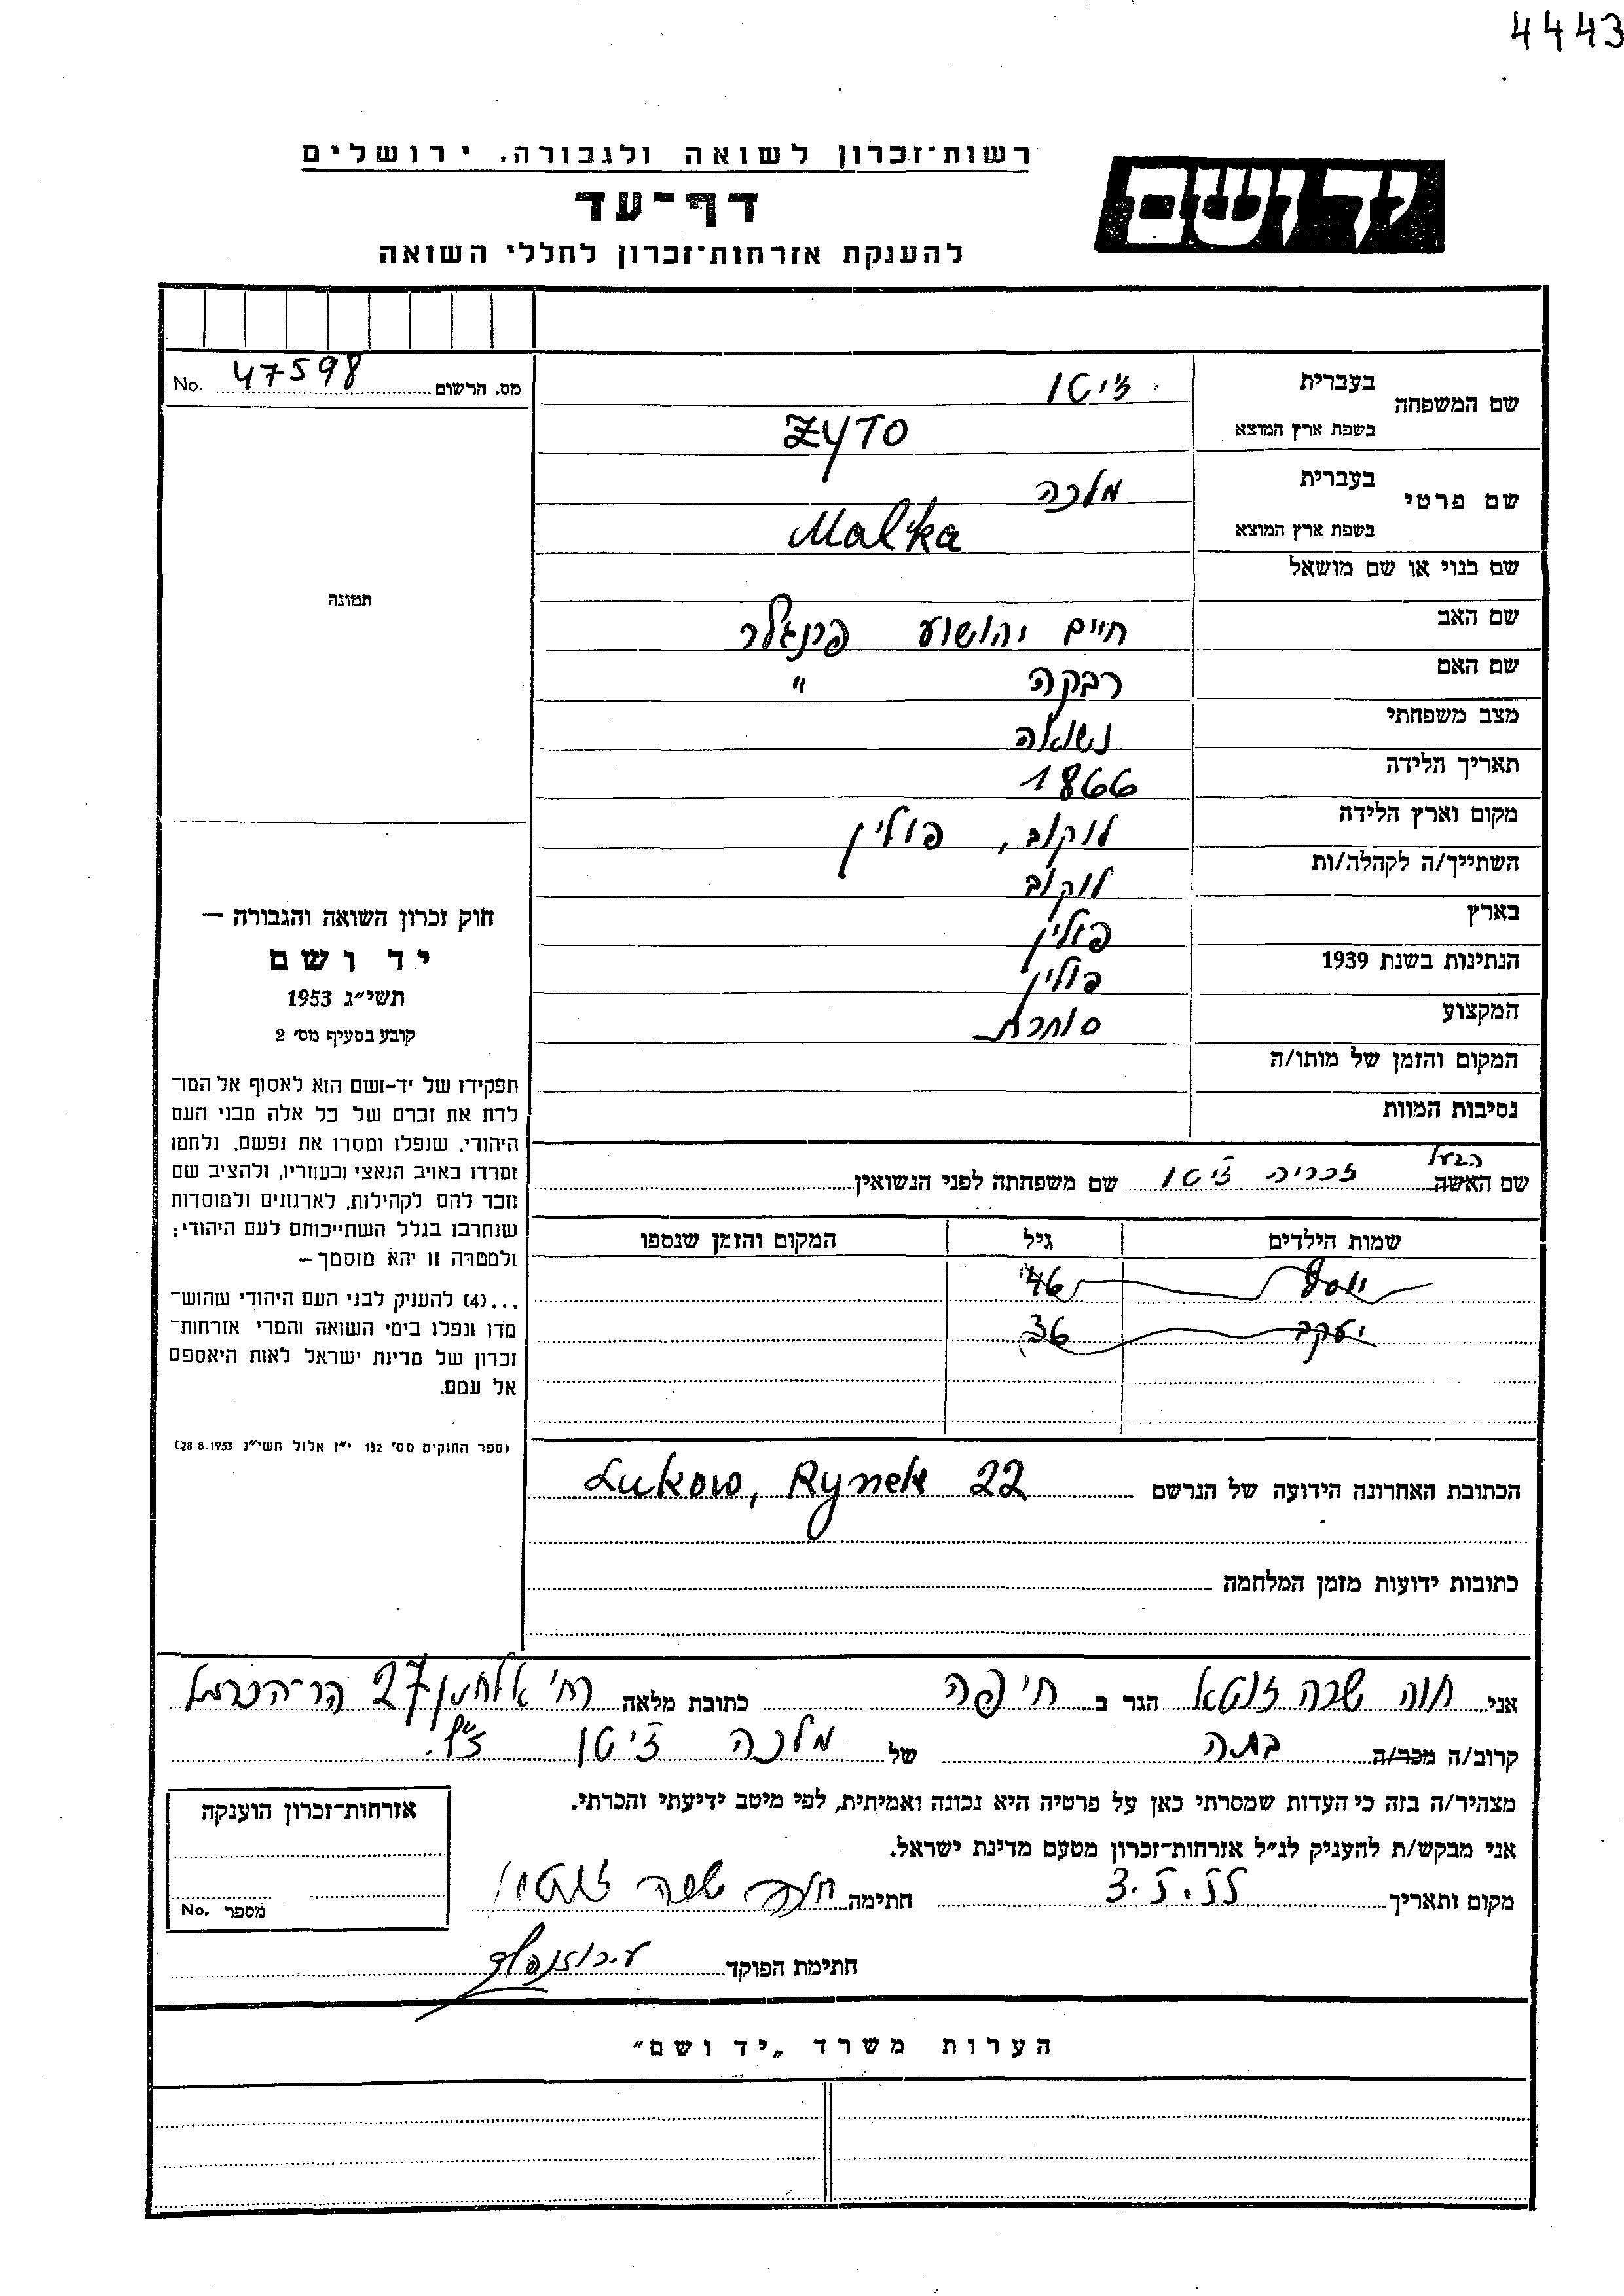 4443
רשות־זכרון לשואה ולגבורה, ירושלים
יד ושם
דף־עד
להענקת אזרחות־זכרון לחללי השואה
מס. הרשום 47598 No.
שם המשפחה
בעברית ז׳יטו
בשפת ארץ המוצא ZYTO
שם פרטי
בעברית מלכה
בשפת ארץ המוצא Malka
שם כנוי או שם מושאל
שם האב חיים יהושוע פינגלר
שם האם רבקה "
מצב משפחתי נשואה
תאריך הלידה 1866
מקום וארץ הלידה לוקוב, פולין
השתייך/ה לקהלה/ות לוקוב
בארץ פולין
הנתינות בשנת 1939 פולין
המקצוע סוחרת
המקום והזמן של מותו/ה
נסיבות המוות
הבעל
שם האשה זכריה ז׳יטו שם משפחתה לפני הנשואין
שמות הילדים גיל המקום והזמן שנספו
יוסף 46
יעקב 36
הכתובת האחרונה הידועה של הנרשם Lukow, Rynek 22
כתובות ידועות מזמן המלחמה
תמונה
חוק זכרון השואה והגבורה —
יד ושם
תשי״ג 1953
קובע בסעיף מס׳ 2
תפקידו של יד-ושם הוא לאסוף אל המו־
לדת את זכרם של כל אלה מבני העם
היהודי, שנפלו ומסרו את נפשם, נלחמו
ומרדו באויב הנאצי ובעוזריו, ולהציב שם
וזכר להם לקהילות, לארגונים ולמוסדות
שנחרבו בגלל השתייכותם לעם היהודי;
ולמטרה זו יהא מוסמך—
...(4) להעניק לבני העם היהודי שהוש־
מדו ונפלו בימי השואה והמרי אזרחות־
זכרון של מדינת ישראל לאות היאספם
אל עמם.
(ספר החוקים מס׳ 132 י״ז אלול תשי״ג 28.8.1953)
אני חוה שבה זוטא הגר ב חיפה כתובת מלאה רח׳ אלחנן 27 הר־הכרמל
קרוב/ה מכר/ה בתה של מלכה ז׳יטו ז״ל.
מצהיר/ה בזה כי העדות שמסרתי כאן על פרטיה היא נכונה ואמיתית, לפי מיטב ידיעתי והכרתי.
אני מבקש/ת להעניק לנ״ל אזרחות־זכרון מטעם מדינת ישראל.
מקום ותאריך 3.5.55 חתימה חוה שבה זוטא
חתימת הפוקד
אזרחות־זכרון הוענקה
מספר No.
הערות משרד „יד ושם"